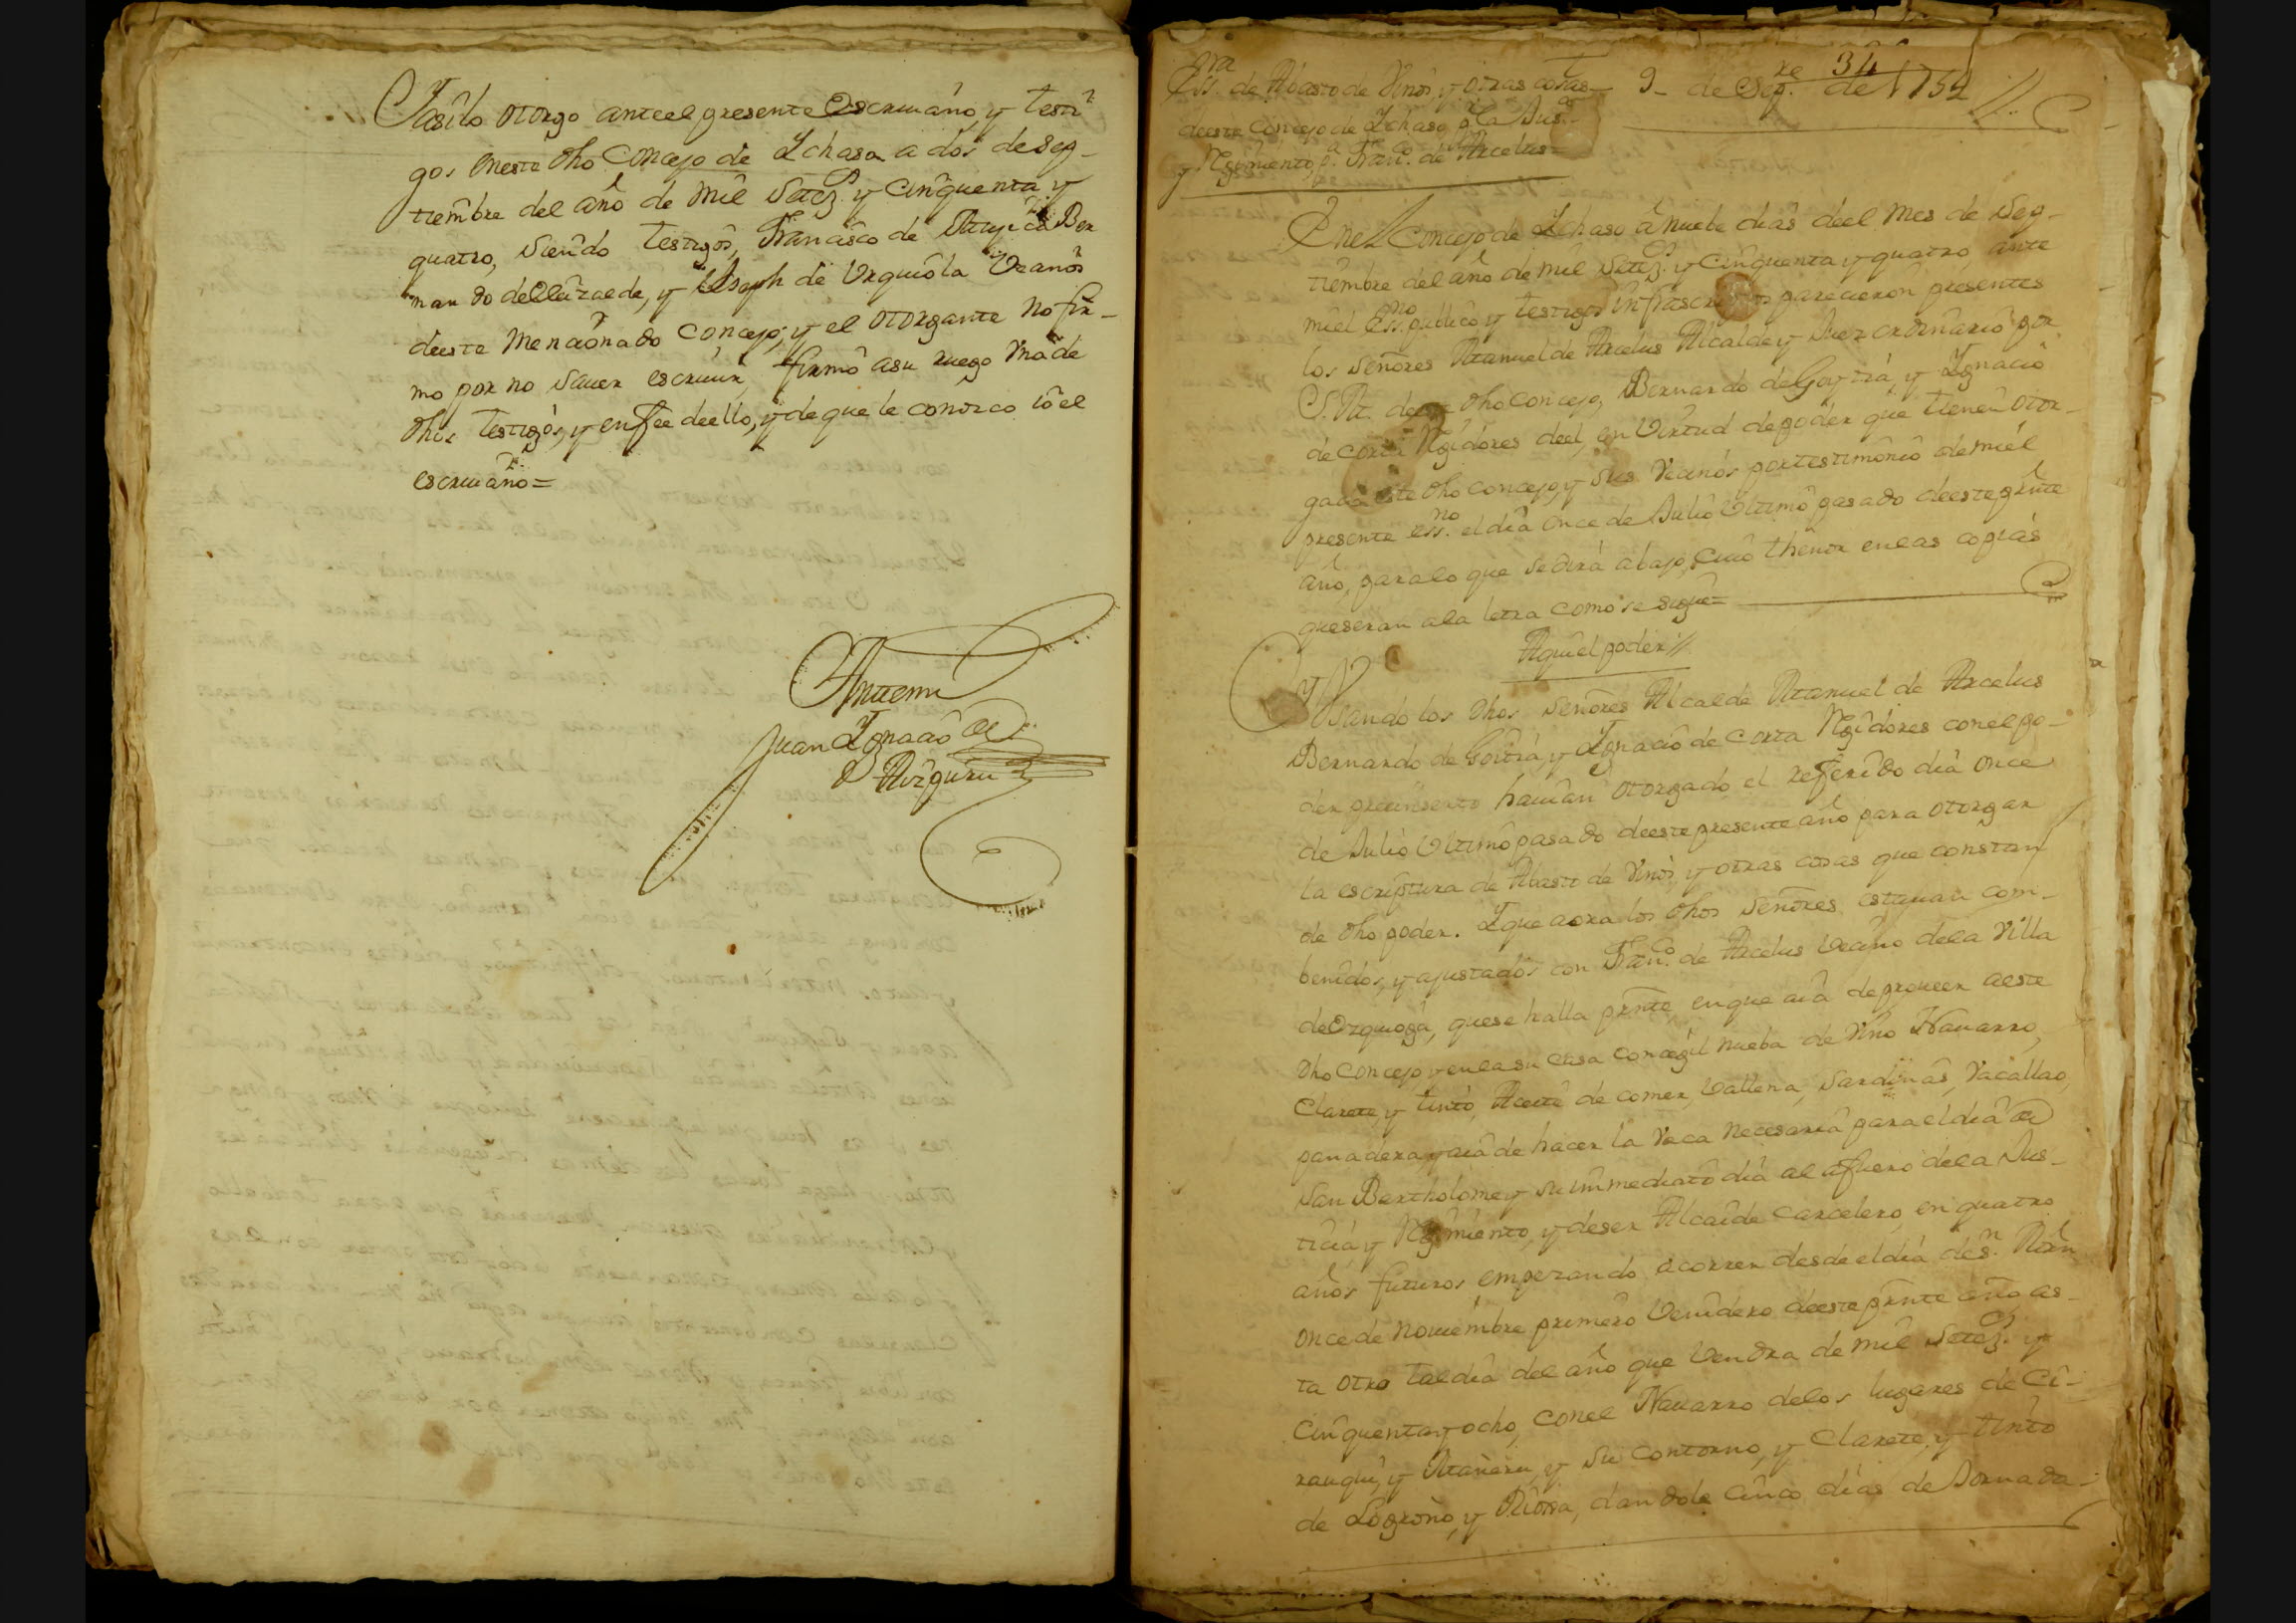 Iasilo otorgo ante el presente Escriuano, y testi
gos eneste dho Concejo de Ichaso a dos de Sep-
tiembre del año de mil Setez.s y Cinquenta y
quatro, siendo testigos, Francisco de Ber
nando de Elizalde, y Joseph de Vrquiola Vezinos
deeste mencionado Concejo, y el otorgante no fir-
mo por no Sauer escriuir, firmò asu ruego Vno de
dhos testigos, y en fee deello, y de que le conozco iô el
escriuano=
Antemi
Juan Ignacio de
Aizpuru
34
Ess.ra de Abasto de Vinos, y otras cosas 9- de Sep.re de 1754 //.
deeste Concejo de Ichaso p.r la Jus.a
y Regimiento, p.a Fran.co de Arcelus=
Enel Concejo de Ichaso â nuebe dias deel mes de Sep-
tiembre del año de mil Setez.s y Cinquenta y quatro, ante
miel Ess.no publico y testigos infrascriptos parecieron presentes
los Señores Manuel de Arcelus Alcalde y Juez ordinario por
S. M. deeste dho Concejo, Bernardo de Goytia, y Ignacio
de Corta Regidores deel, en Virtud depoder que tienen otor-
gada este dho Concejo, y sus Vecinos por testimonio de miel
presente ess.no el dia Once de Julio Vltimo pasado deeste pnte
año, para lo que se dirá abajo, Cuio thenor en las copias
que seran ala letra como se sigue=
Aqui el poder //.
Y Vsando los dhos Señores Alcalde Manuel de Arcelus
Bernardo de Goitia, y Ignacio de Corta Regidores con el po-
der preinserto hauian otorgado el referido dia Once
de Julio Vltimo pasado deeste presente año para otorgar
la escriptura de Abasto de Vinos, y otras cosas que constan
de dho poder. Y que aora los dhos Señores estauan com-
benidos, y ajustados con Fran.co de Arcelus Vecino dela Villa
de Ezquioga, que se halla pnte en que aia de proueer aeste
dho Concejo y enla su Casa Concegil nueba de Vino Nauarro,
Clarete, y tinto, Aceite de comer, Vallena, Sardinas, Vacallao,
panadera, y aia de hacer la Vaca necesaria para el dia de
San Bartholome y su inmediato dia al afuero dela Jus-
ticia y Regimiento, y deser Alcaide carcelero, en quatro
años futuros empezando â correr desde el dia de S.n Mrn
once de nouiembre primero Venidero deeste pnte año, as-
ta otro tal dia del año que Vendra de mil Setez.s y
Cinquenta y ocho, con el Nauarro delos lugares de Ci-
rauqui, y Mañeru, y su contorno, y Clarete, y tinto
de Logroño, y Rioxa, dandole cinco dias de Jornada-